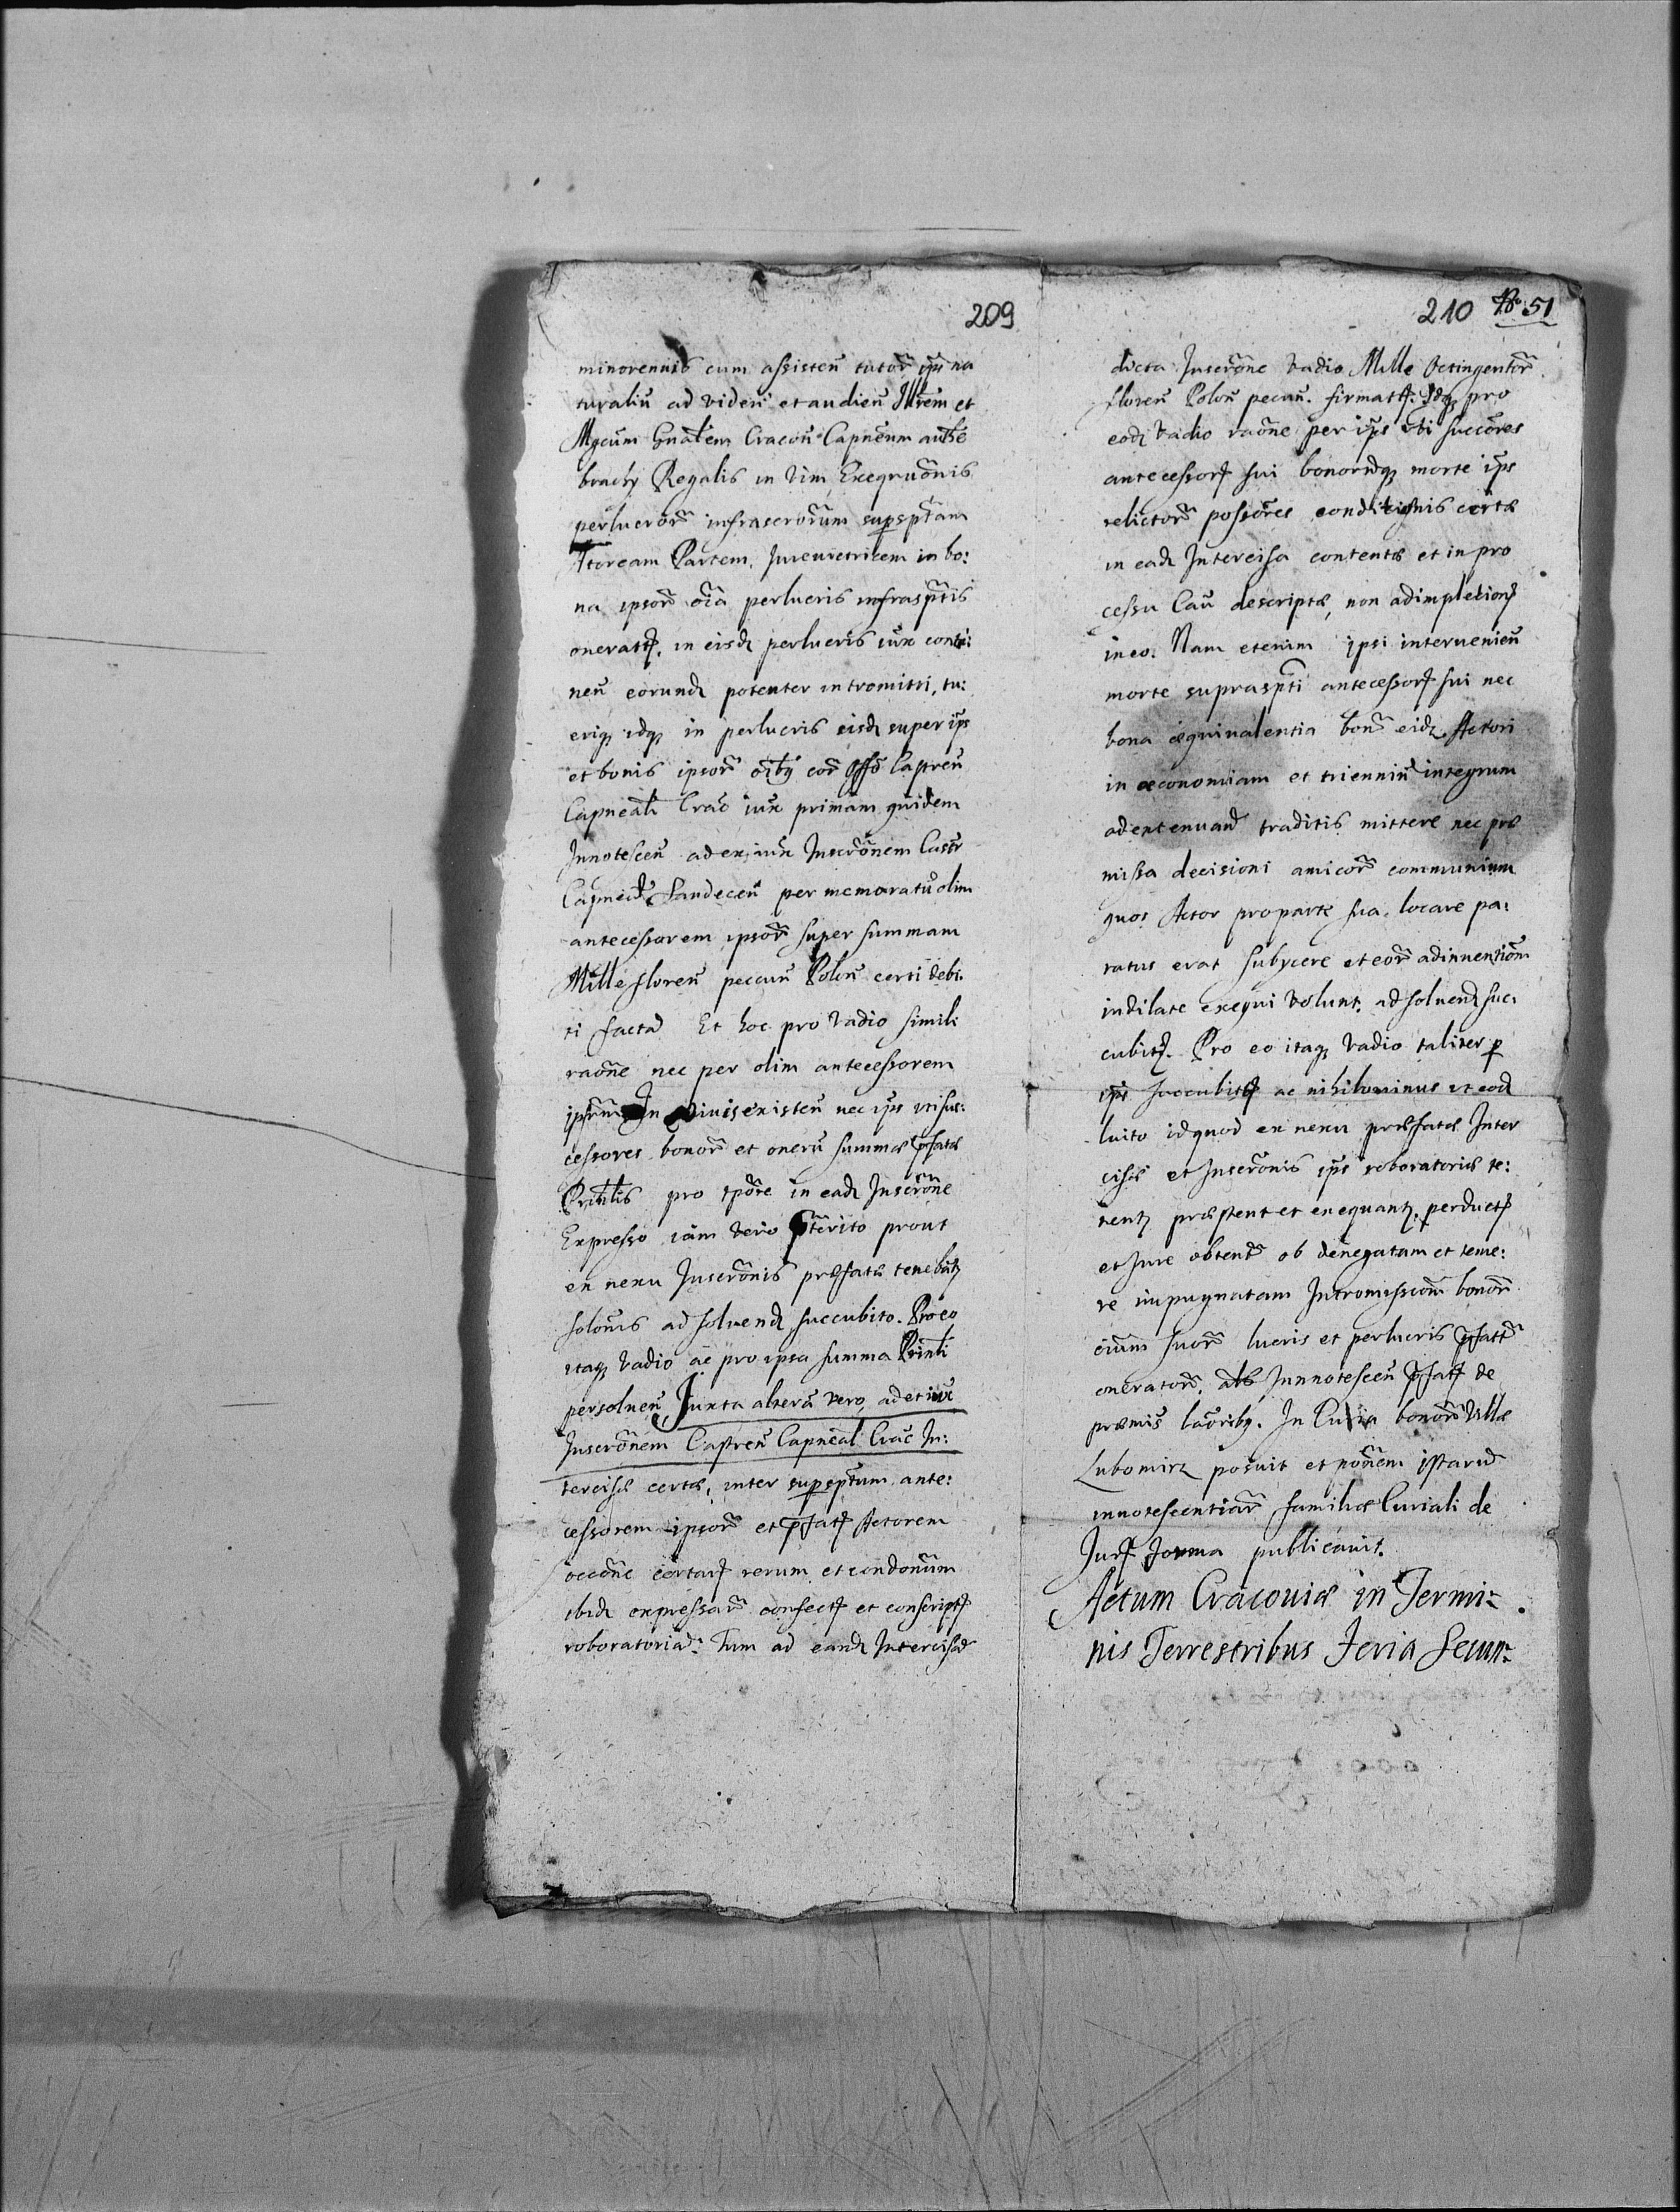 209
minorennis cum assisten tutor ips na
turaliu ad viden et audien Illrem et
Mgcum Gnalem Cracou Capneum authe
brachy Regalis in vim Exeqruonis
perlucror infrascrorum supsptam
Actoream Partem, Jureuictricem in bo:
na ipsor oia perlucris infrasptis
oneratt. in eisd perlucris iux conti:
nen eorund potenter intromitti, tu:
eriq idq in perlucris eisd super ips
et bonis ipsor oiby cor Offo Castren
Capneali Crac iux primam quidem
Innotescen ad ex, iux Inscronem Castr
Capneal Sandecen per memoratu olim
antecessorem ipsor super summam
Mille floren peccun Polon certi debi.
ti facta Et hoc pro vadio simili
raone nec per olim antecessorem
ipsrum In viuis existen nec ips uti suc:
cessores bonor et oneru summae pfatae
Prinlis pro tpore in ead Inscrone
Expresso iam vero pterito prout
ex nexu Inscronis praefatae tenebatz
solouis ad soluend succubito. Pro eo
itaq vadio ac pro ipsa summa Prinli
persoluen, Juxta altera vero, ad et iux
Inscronem Castren Capneal Crac In:
tercisae certae, inter supsptum ante:
cessorem ipsor et pfat Actorem
occone certar rerum et condonum
ibid expressar confect et conscript
roboratoria. Tum ad eand Intercisae
210 No 51
dicta Inscrone vadio Mille Octingentor
floren Polon pecun. firmatt. Idq pro
eod vadio raone per ips uti succores
antecessor sui bonorumq morte ips
relictor possores conditionis certae
in ead Intercisa contentae et in pro
cessu Cau descriptae, non adimpletion
in eo. Nam etenim ipsi interuenien
morte supraspti antecessor sui nec
bona aequiualentia bon eidz Actori
in oeconomiam et trienniu integrum
ad extenuand traditis mittere nec prae
missa decisioni amicor communium
quos Actor pro parte sua, locare pa:
ratus erat subycere et eor adinuention
indilate exequi volunt. ad soluend suc:
cubit. Pro eo itaq vadio taliter p
ips succubit ac nihilominus ut eod
luito id quod ex nexu praefatae Inter
cisae et Inscronis ips roboratoriae te:
nentz praestent et exequantz. perduct
et Jure obtent ob denegatam et teme:
re impugnatam Intromissiom bonor
oium suor lucris et perlucris pfatt
onerator, als Innotescen pfat de
praemis lauoriby. In Curia bonor Villae
Lubomirz posuit et nonem istarud
innotescentiar familiae Curiali de
Jur forma publicauit.
Actum Cracouiae in Termi:
nis Terrestribus Feria Secun: